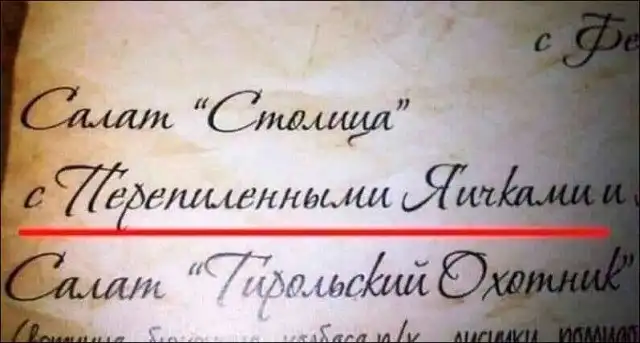 с Фе
Салат "Столица"
с Перепиленными Яичками и
Салат "Тирольский Охотник"
колбаса п/к